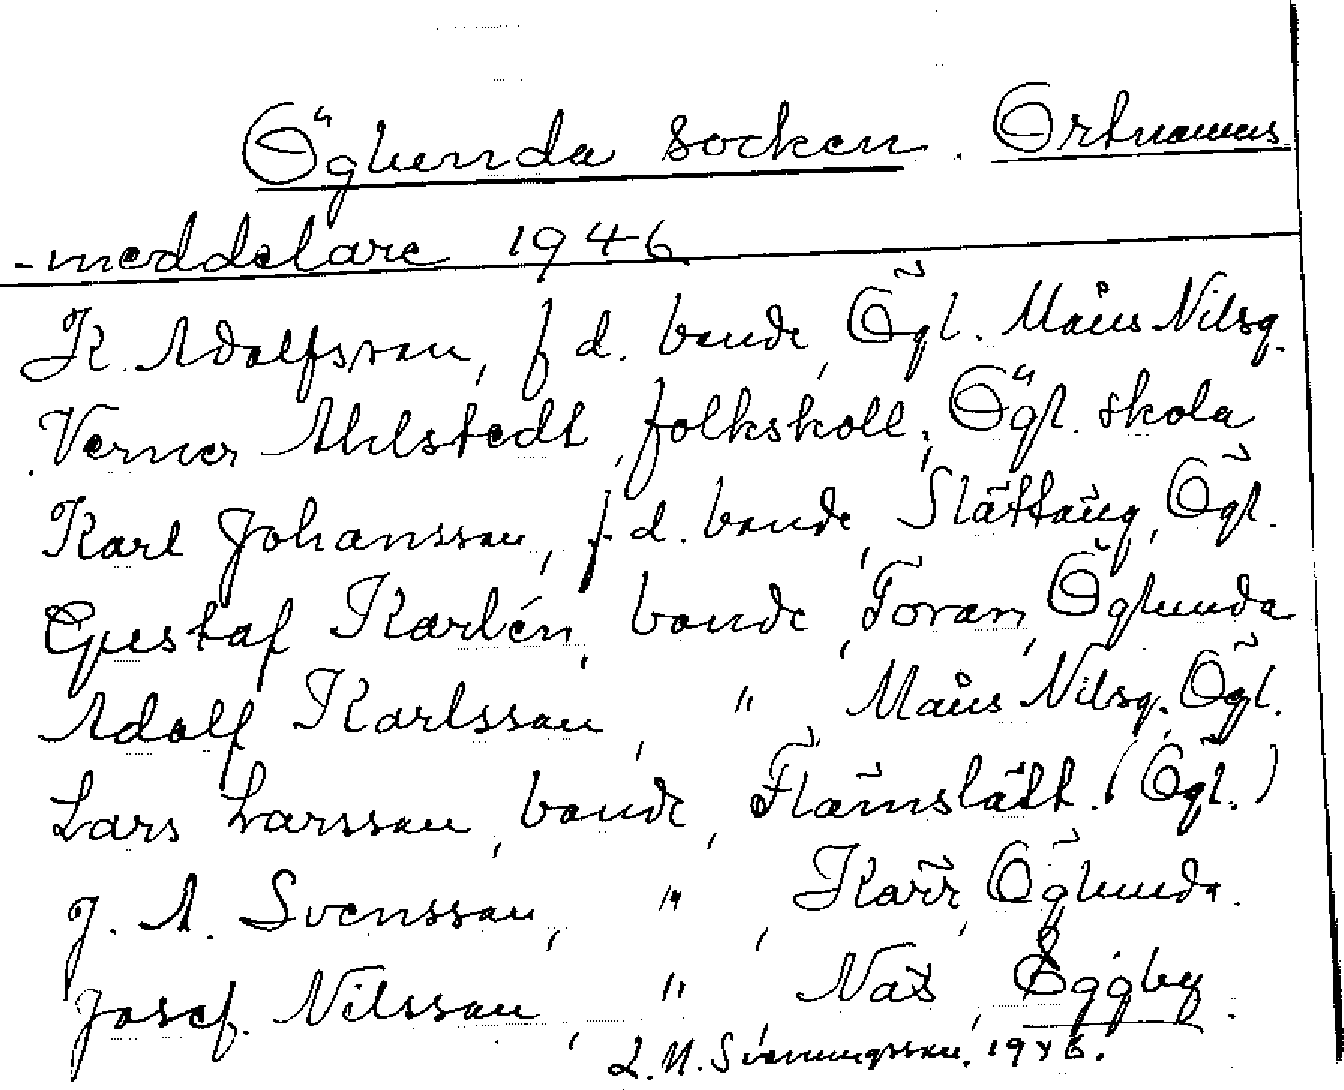 Öglunda socken. Ortnamns
-meddelare 1946
K. Adolfsson, f d. bonde, Ögl. Måns Nilsg.
Verner Ahlstedt, folkskoll, Ögl. skola
Karl Johansson, f. d. bonde, Slättäng, Ögl.
Gustaf Karlén, bonde, Toran, Öglunda
Adolf Karlsson, " , Måns Nilsg. Ögl.
Lars Larsson, bonde, Flämslätt. (Ögl.)
J. A. Svensson, " , Kärr, Öglunda.
Josef. Nilsson, " , Näs, Eggby.
L. N. Svenungsson. 1946.